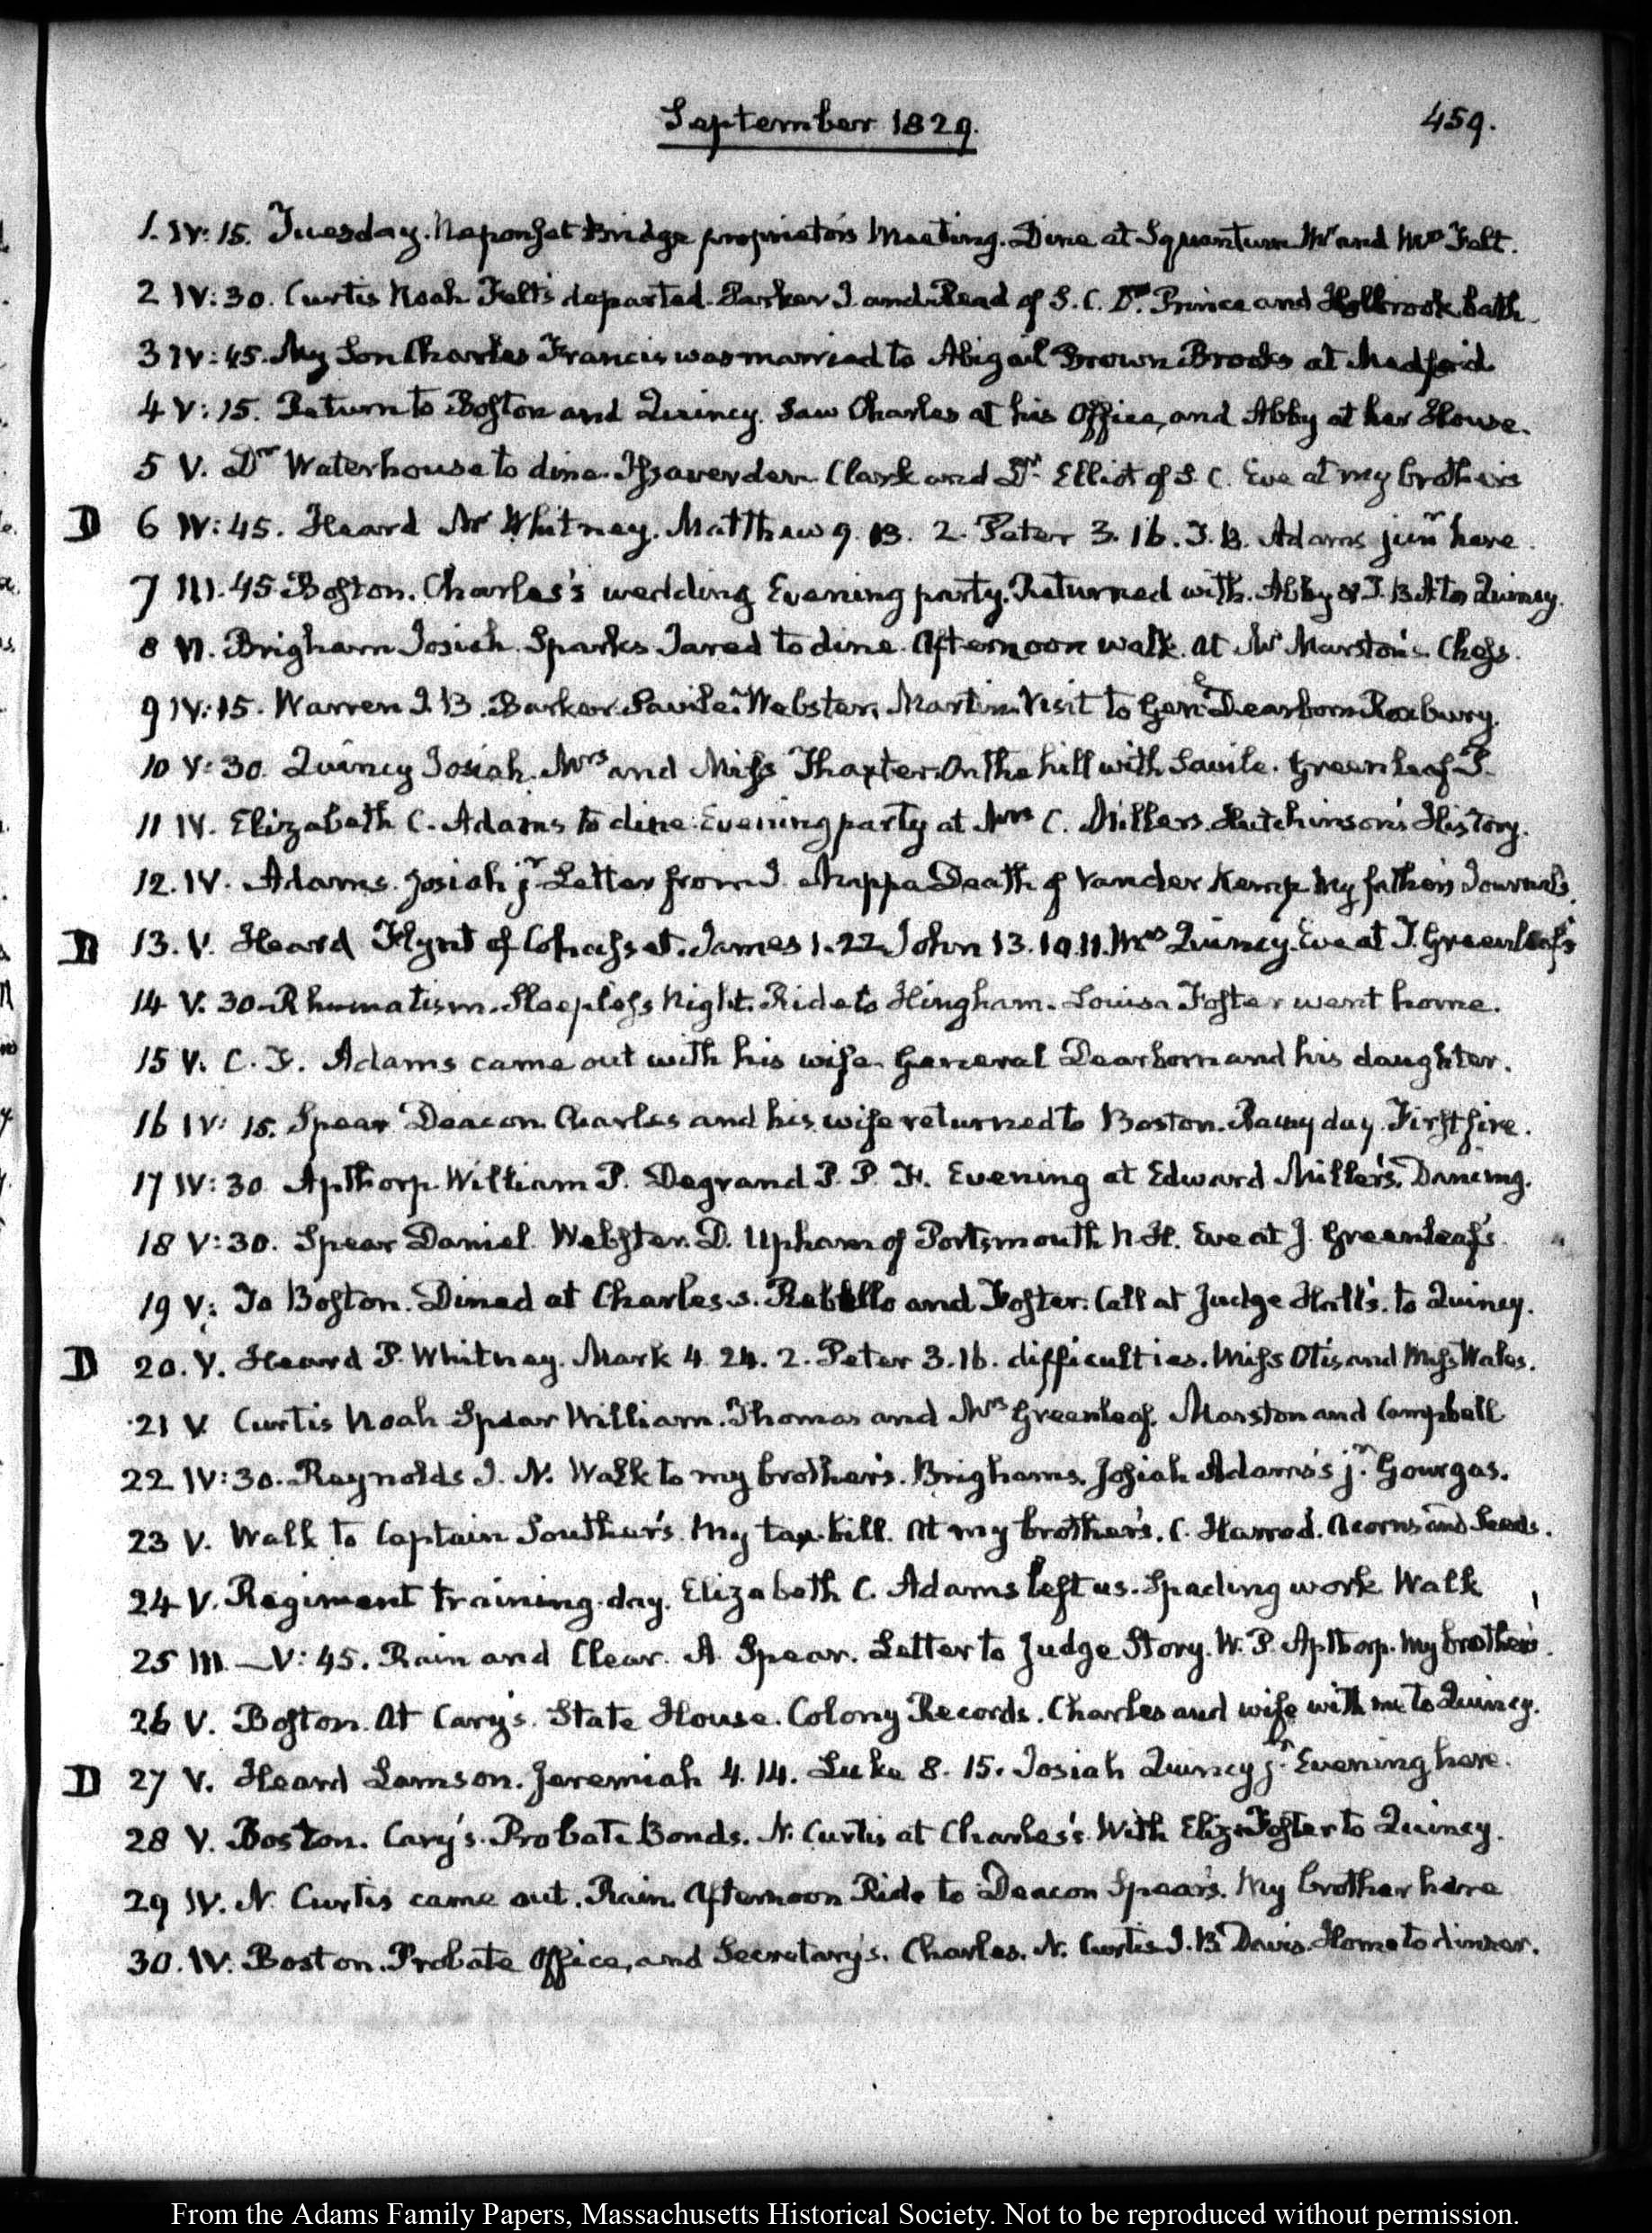 September 1829.
459.
1. IV: 15. Tuesday. Neponset Bridge proprietors Meeting. Dine at Squantum Mr and Mrs Felt.
2 IV: 30. Curtis Noah Felts departed. Parker I and Read of S. C. Dr. Prince and Holbrook bath
3 IV: 45. My Son Charles Francis was married to Abigail Brown Brooks at Medford
4 V: 15. Return to Boston and Quincy. Saw Charles at his Office, and Abby at her House.
5 V. Dr Waterhouse to dine. Clark and Dr. Elliot of S. C. Eve at my brother's
D 6 IV: 45. Heard Mr Whitney. Matthew 9. 13. 2. Peter 3. 16. T. B. Adams junr here.
7 III. 45 Boston. Charles's wedding Evening party. Returned with Abby & T. B A to Quincy.
8 VI. Brigham Josiah. Sparks Jared to dine. Afternoon walk. At Mr Marston's. Chess.
9 IV: 15. Warren J. B. Barker. Savile. Webster, Martin. Visit to Genl Dearborn Roxbury.
10 V: 30. Quincy Josiah. Mrs and Miss Thaxter. On the hill with Savile. Greenleaf P.
11 IV. Elizabeth C. Adams to dine. Evening party at Mrs C. Millers. Hutchinson's History.
12. IV. Adams. Josiah jr Letter from J. Mappa Death of Vander Kemp My father's Journals.
D 13. V. Heard Flynt of Cohasset. James 1. 22 John 13. 10. 11. Mrs Quincy. Eve at T. Greenleaf's
14 V. 30 Rhumatism. Sleepless Night. Ride to Hingham. Louisa Foster went home.
15 V. C. F. Adams came out with his wife. General Dearborn and his daughter.
16 IV: 15. Spear Deacon. Charles and his wife returned to Boston. Rainy day. First fire.
17 IV: 30. Apthorp William P. Degrand P. P. F. Evening at Edward Miller's. Dancing.
18 V: 30. Spear Daniel. Webster. D. Upham of Portsmouth N. H. Eve at J. Greenleaf's
19 V: To Boston. Dined at Charles's. Rebello and Foster. Call at Judge Hall's. to Quincy.
D 20. V. Heard P. Whitney. Mark 4 24. 2. Peter 3. 16. difficulties. Miss Otis and Miss Wales.
21 V. Curtis Noah Spear William. Thomas and Mrs Greenleaf. Marston and Campbell
22 IV: 30. Reynolds I. N. Walk to my brother's. Brighams. Josiah Adams's jr. Gourgas.
23 V. Walk to Captain Souther's. My tax-bill. At my brother's. C. Harrod. Acorns and Seeds.
24 V. Regiment training day. Elizabeth C. Adams left us. Spading work Walk
25 III. —V: 45. Rain and Clear. A. Spear. Letter to Judge Story. W. P. Apthorp. My brother's.
26 V. Boston. At Cary's. State House. Colony Records. Charles and wife with me to Quincy.
D 27 V. Heard Lamson. Jeremiah 4. 14. Luke 8. 15. Josiah Quincy jr. Evening here.
28 V. Boston. Cary's. Probate Bonds. N. Curtis at Charles's. With Eliza Foster to Quincy.
29 IV. N. Curtis came out. Rain. Afternoon Ride to Deacon Spear's. My brother here
30. IV. Boston. Probate Office, and Secretary's. Charles. N. Curtis. I. B Davis. Home to dinner.
From the Adams Family Papers, Massachusetts Historical Society. Not to be reproduced without permission.